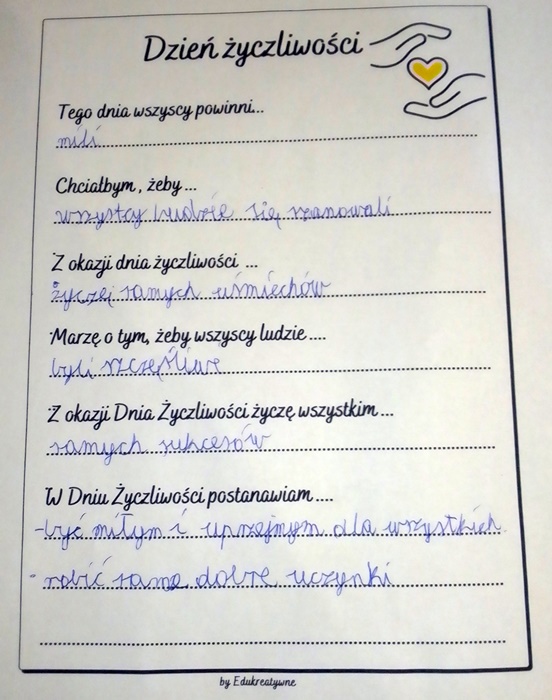 Dzień życzliwości
Tego dnia wszyscy powinni...
mili
Chciałbym, żeby...
wszyscy ludzie się szanowali
Z okazji dnia życzliwości ...
życzę samych uśmiechów
Marzę o tym, żeby wszyscy ludzie....
byli szczęśliwe
Z okazji Dnia Życzliwości życzę wszystkim...
samych sukcesów
W Dniu Życzliwości postanawiam....
- być miłym i uprzejmym dla wszystkich
- robić same dobre uczynki
by Edukreatywne